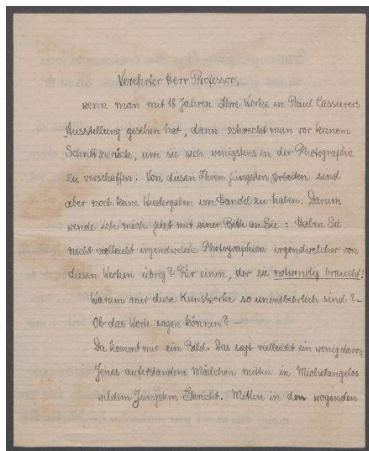 Verehrter Herr Professor,
wenn man mit 18 Jahren Ihre Werke in Paul Cassirers
Ausstellung gesehen hat, dann schreckt man vor keinem
Schritt zurück, um sie sich wenigstens in der Photographie
zu verschaffen. Von diesen Ihren jüngsten Arbeiten sind
aber noch keine Wiedergaben im Handel zu haben. Darum
wende ich mich jetzt mit einer Bitte an Sie: Haben Sie
nicht vielleicht irgendwelche Photographien irgendwelcher von
diesen Werken übrig? Für einen, der sie notwendig braucht!
Warum mir diese Kunstwerke so unentbehrlich sind? -
Ob das Worte sagen können? -
Da kommt mir ein Bild. Das sagt vielleicht ein wenig davon
Jenes auferstandene Mädchen mitten in Michelangelos
wildem Jüngsten Gericht. Mitten in dem wogenden